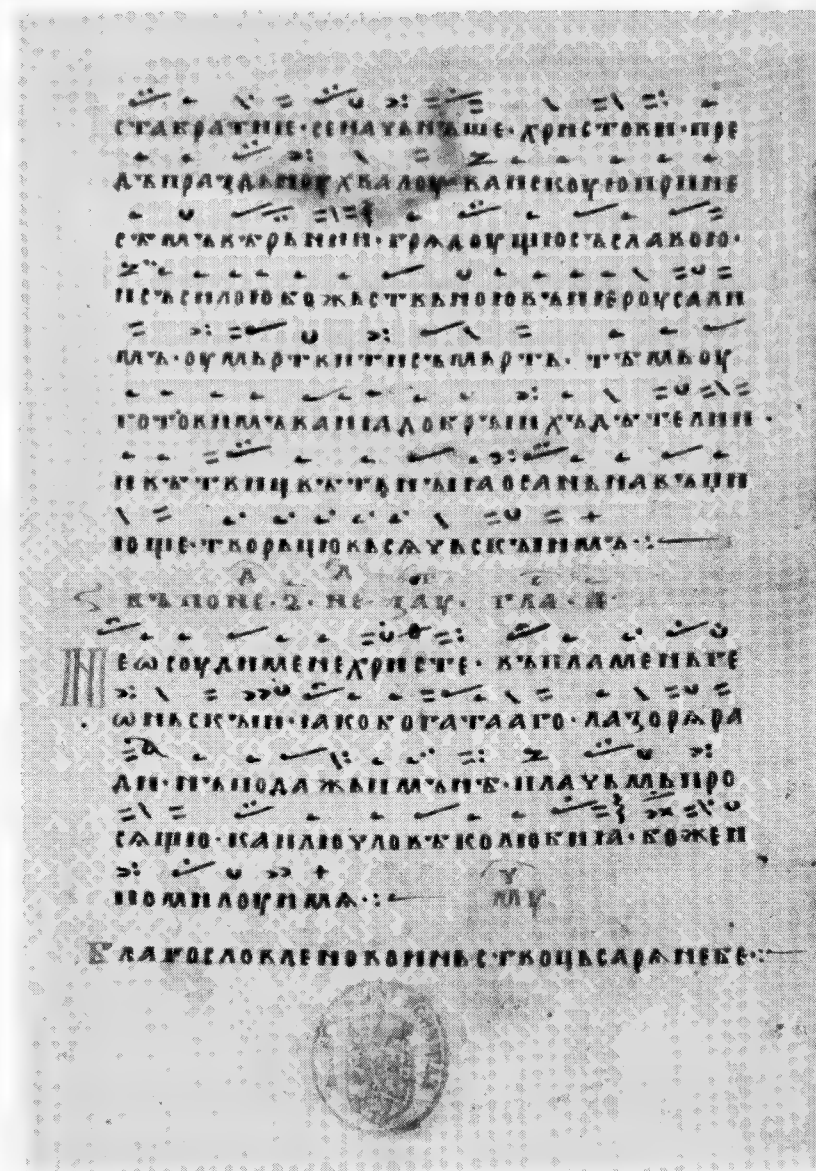 стократиѥ · се науѣнъше · христови · пре
дъпраздьноу хвалоу ваискоую приние
сѣмъ вѣрьнии · градоущю съ славою ·
и съ силою божьствьною въ иероусали
мъ · оумьртвити съмьрть · тѣмь оу
готовимъ ваиа добрыихъ дѣтелии ·
и вѣтви цвѣтьныꙗ осанъна въпи
юще · творьцю вьсѧчьскъимъ ·:
въ поне · 2 · не ꙁау · гла · а ·
Не ѡсоуди мене христе · въ пламень ге
ѡньскъи · ꙗко богатааго · лаꙁорѧ ра
ди · нъ подажь ми мънѣ · плачьмь про
сѧщю · каплю чловѣколюбиꙗ · боже и
помилоуи мѧ ·:
му
Благословленокониньствоцьсарѧнебе ·: